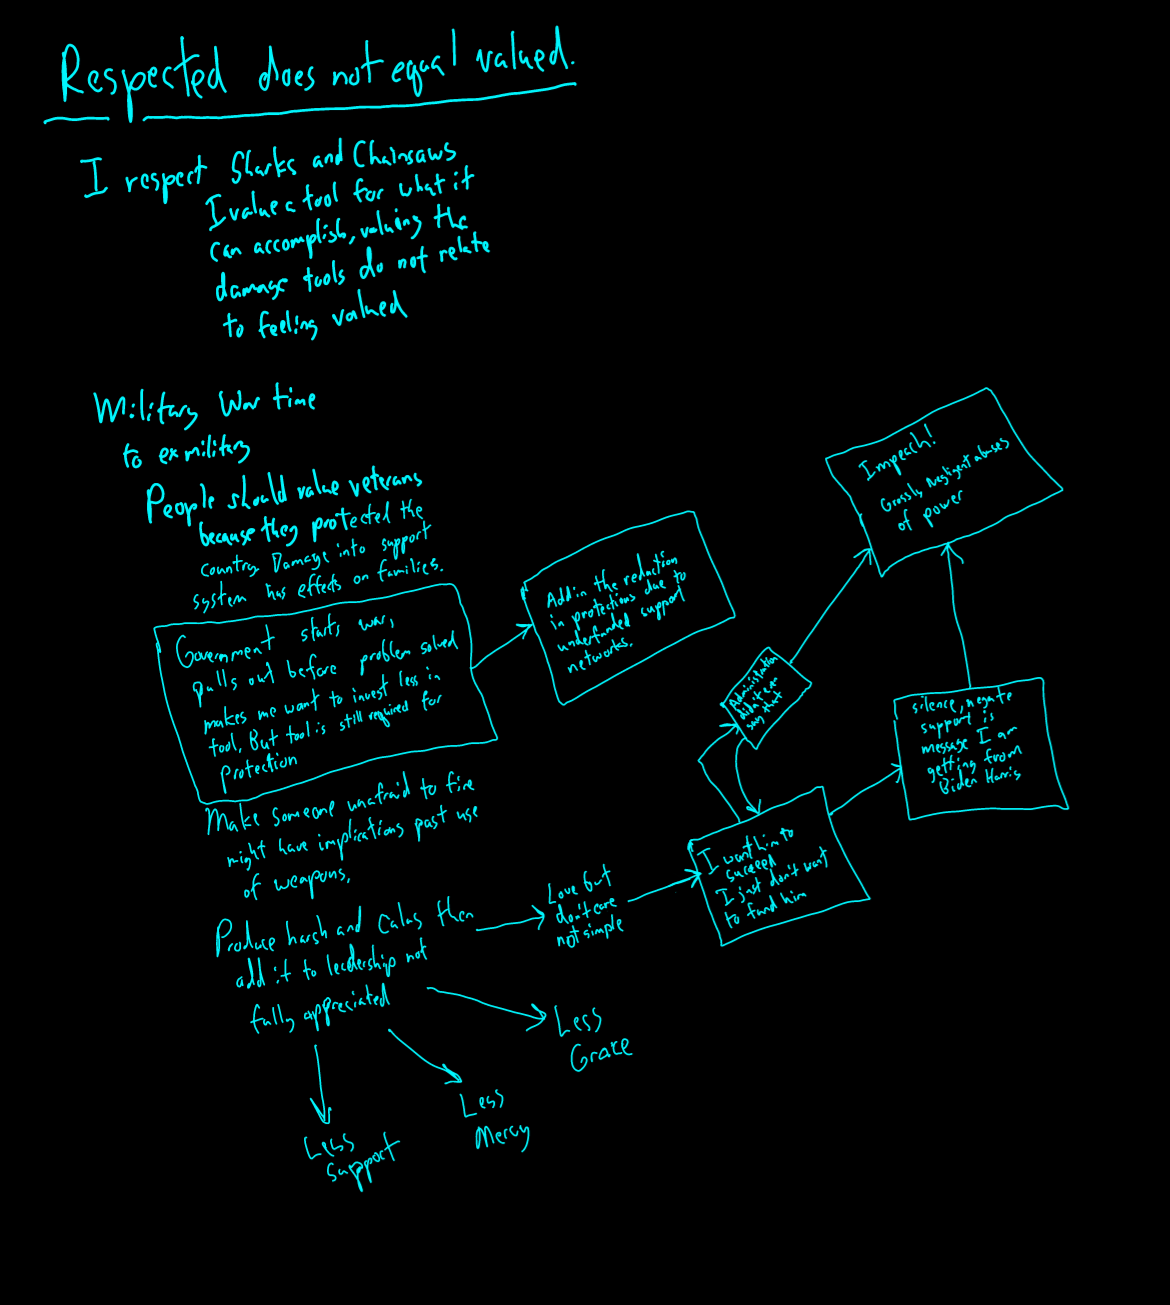 Respected does not equal valued.
I respect Sharks and Chainsaws
I value a tool for what it
can accomplish, valuing the
damage tools do not relate
to feeling valued
Military War time
to ex military
People should value veterans
because they protected the
country. Damage into support
system has effects on families.
Government starts war,
pulls out before problem solved
makes me want to invest less in
tool, But tool is still required for
protection
Add in the reduction
in protections due to
underfunded support
networks.
Impeach!
Grossly Negligent abuses
of power
Administration
didn't even
say that
silence, negate
support is
message I am
getting from
Biden Harris
Make someone unafraid to fire
might have implications past use
of weapons.
I want him to
succeed
I just don't want
to fund him
Love but
don't care
not simple
Produce harsh and Calas then
add it to leadership not
fully appreciated
Less
Grace
Less
Mercy
Less
Support